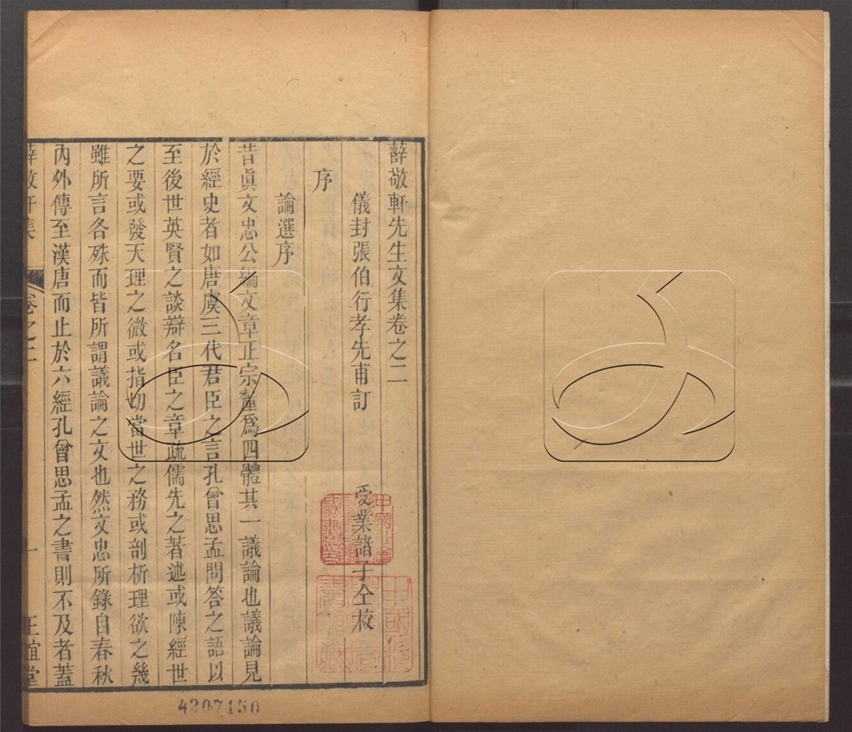 薛敬軒先生文集卷之二
儀封張伯行孝先甫訂 受業諸子仝校
序
論選序
昔眞文忠公編文章正宗釐爲四體其一議論也議論見
於經史者如唐虞三代君臣之言孔曾思孟問答之語以
至後世英賢之談辯名臣之章疏儒先之著述或陳經世
之要或發天理之微或指切當世之務或剖析理欲之幾
雖所言各殊而皆所謂議論之文也然文忠所錄自春秋
內外傳至漢唐而止於六經孔曾思孟之書則不及者蓋
薛敬軒集 卷之二 一 正誼堂
4207150